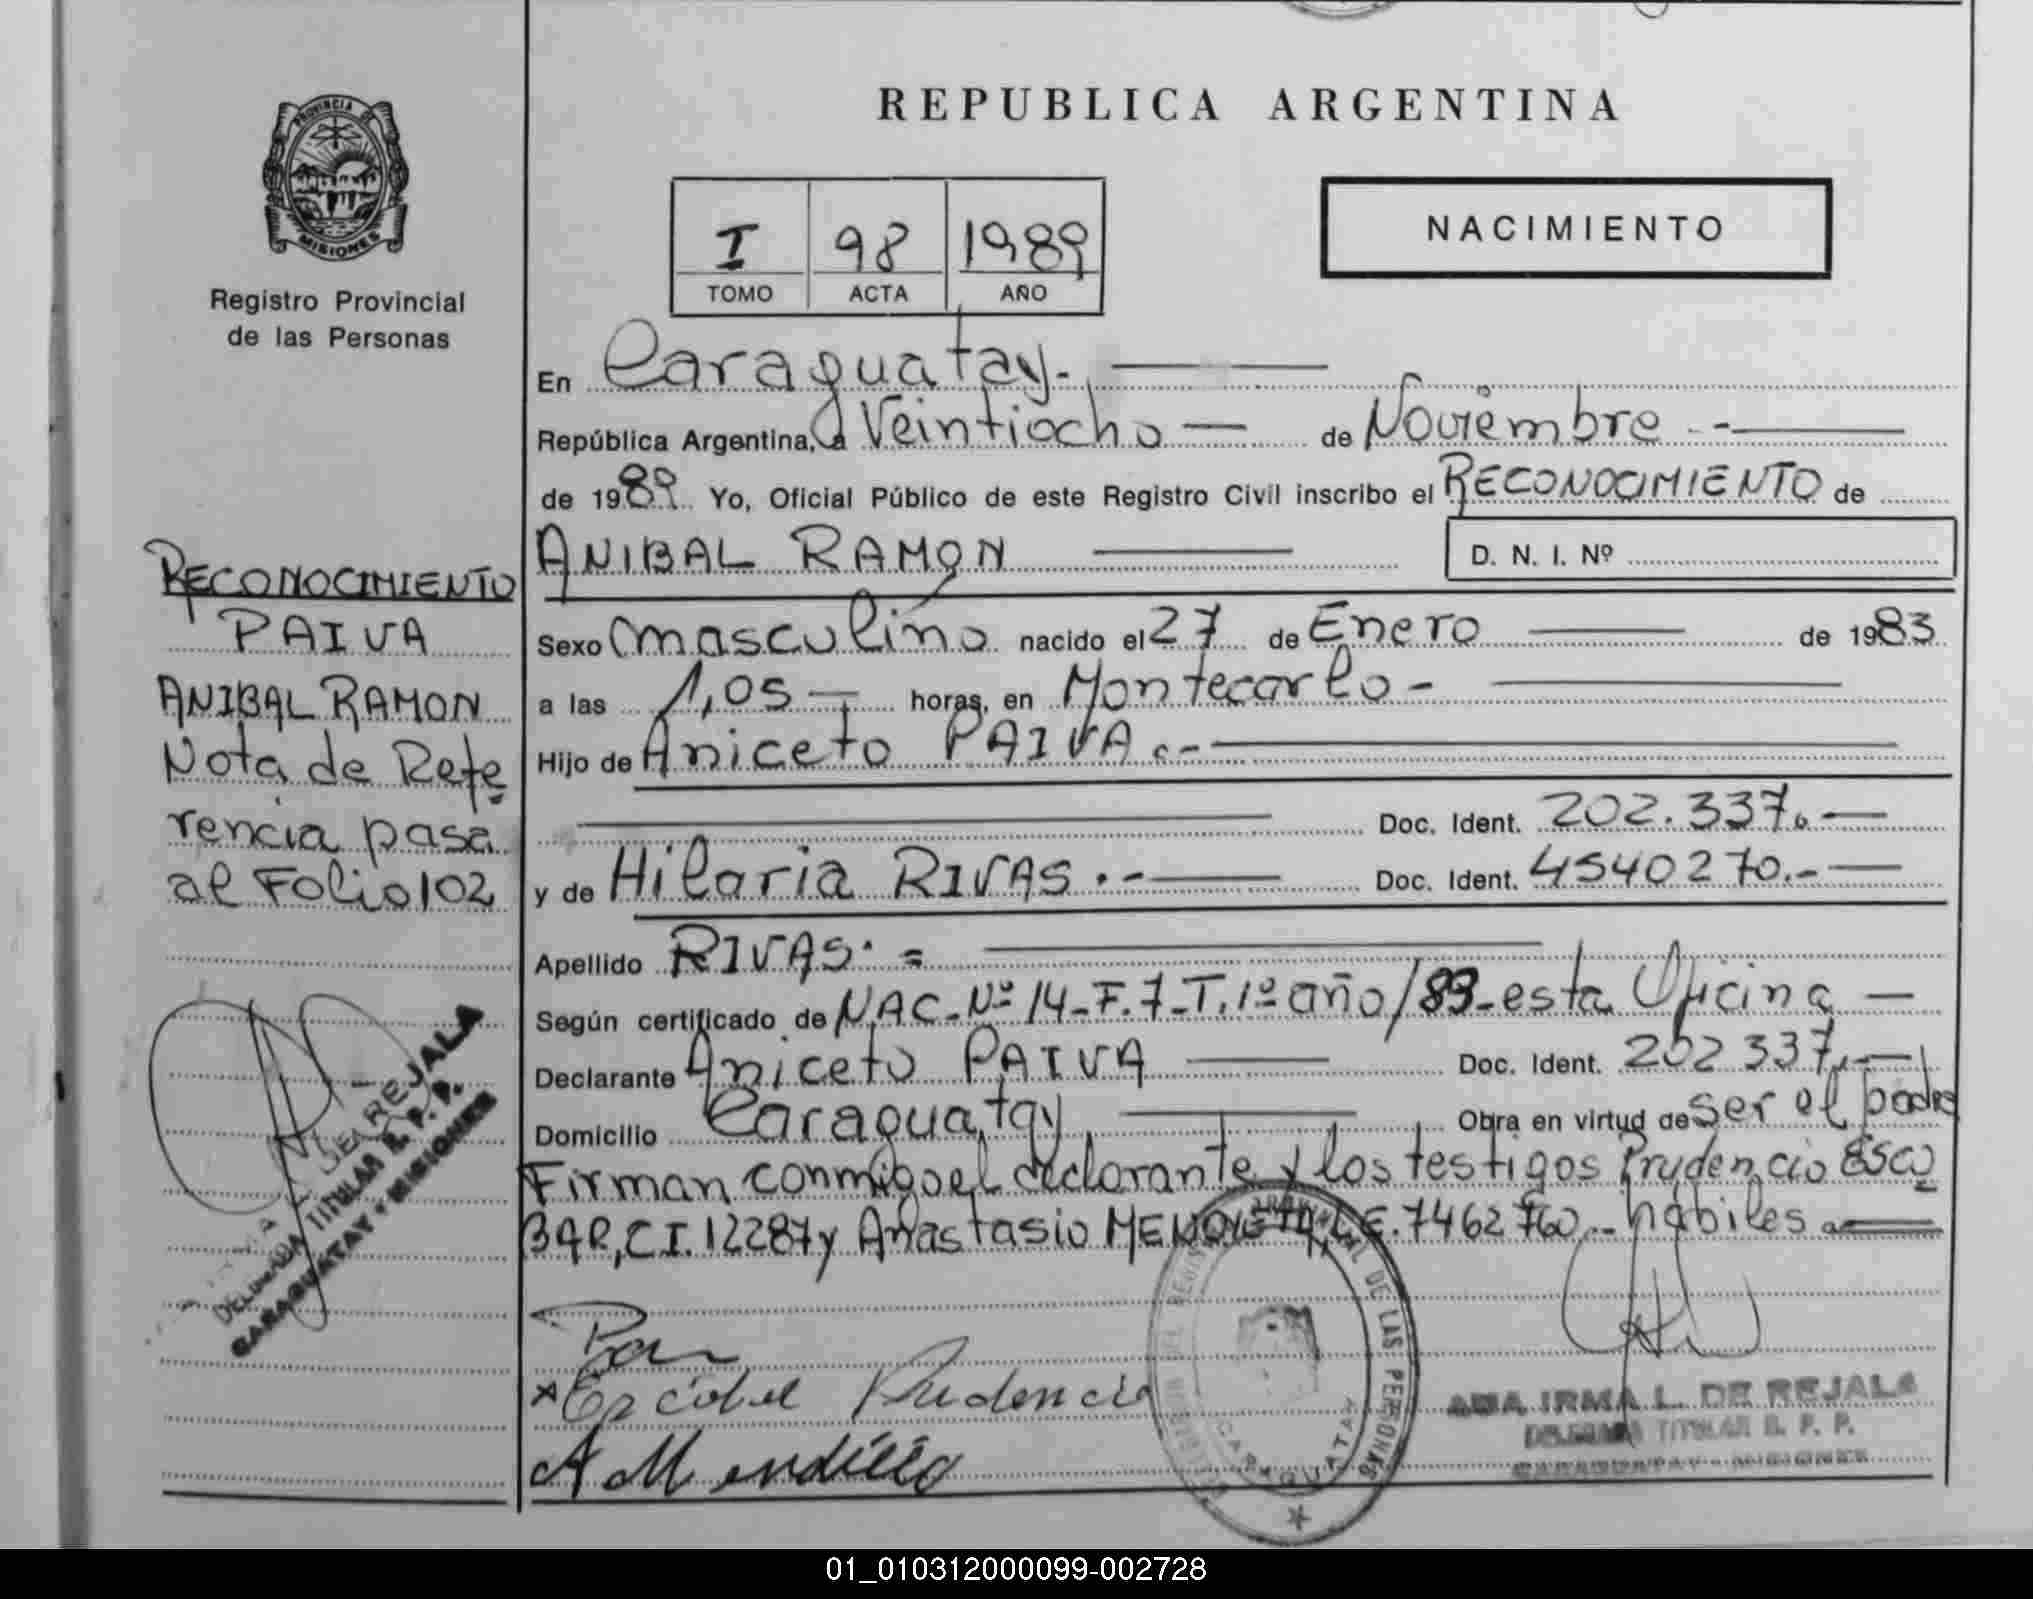 PROVINCIA DE
MISIONES
Registro Provincial
de las Personas
RECONOCIMIENTO
PAIVA
ANIBAL RAMON
Nota de Refe
rencia pasa
al Folio 102
REJALA
TITULAR R. P. P.
CARAGUATAY - MISIONES
REPUBLICA ARGENTINA
I 98 1989
TOMO ACTA AÑO
NACIMIENTO
En Caraguatay.-
República Argentina, a Veintiocho — de Noviembre --
de 1989. Yo, Oficial Público de este Registro Civil inscribo el RECONOCIMIENTO de
ANIBAL RAMON — D. N. I. Nº
Sexo Masculino nacido el 27 de Enero — de 1983
a las 1,05 — horas, en Montecarlo -
Hijo de Aniceto PAIVA.-
Doc. Ident. 202.337.—
y de Hilaria RIVAS.-— Doc. Ident. 4540270.-—
Apellido RIVAS.=
Según certificado de NAC-Nº 14-F.7-T.1º año/83-esta Oficina —
Declarante Aniceto PAIVA — Doc. Ident. 202337.—
Domicilio Caraguatay — Obra en virtud de Ser el padre
Firman conmigo el declarante y los testigos Prudencio ESCO
BAR, C.I. 12287 y Anastasio MENDIETA, L.E. 7462760.- hábiles.=
Escobar Prudencio
A Mendieta
REGISTRO PROVINCIAL DE LAS PERSONAS
CARAGUATAY
ADA IRMA L. DE REJALA
DELEGADA TITULAR R. P. P.
CARAGUATAY - MISIONES
01_010312000099-002728